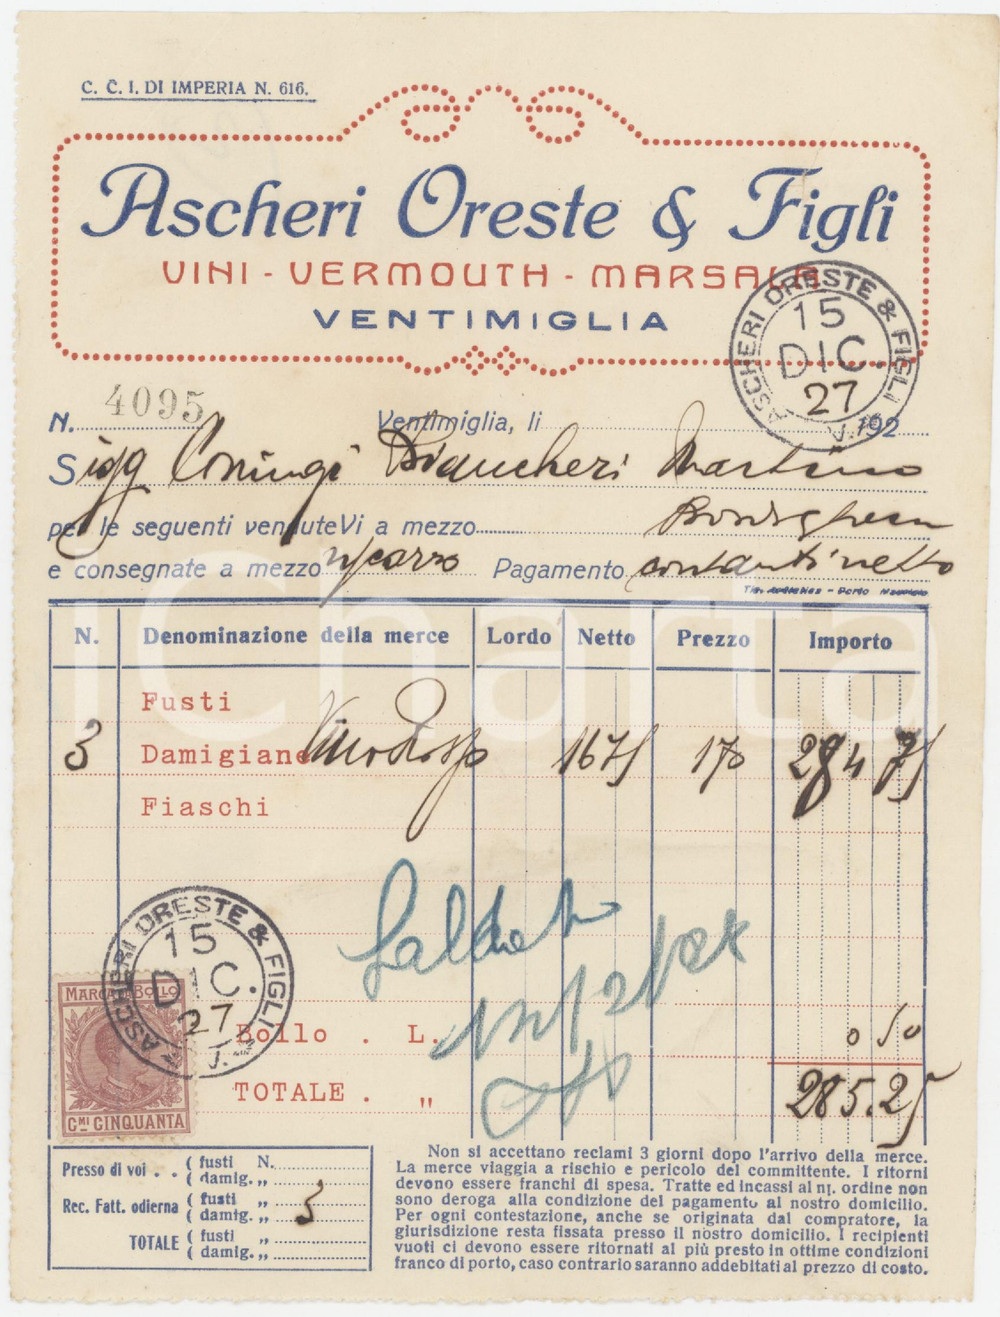 C. C. I. DI IMPERIA N. 616.
Ascheri Oreste & Figli
VINI - VERMOUTH - MARSALA
VENTIMIGLIA
ASCHERI ORESTE & FIGLI
15
DIC.
27
N. 4095 Ventimiglia, li 192
Sigg Coniugi Biancheri Martino
per le seguenti venduteVi a mezzo Bordighera
e consegnate a mezzo n/carro Pagamento contanti netto
N. Denominazione della merce Lordo Netto Prezzo Importo
Fusti
3 Damigiane Vino Rosso 1675 170 284 75
Fiaschi
Saldato
ASCHERI ORESTE & FIGLI
15
DIC.
27
MARCA DA BOLLO
Bollo . L. 0 50
TOTALE . " 285.25
CMI CINQUANTA
Presso di voi . . ( fusti N.
( damig. „
Rec. Fatt. odierna ( fusti „
( damig. „ 3
TOTALE ( fusti „
( damig. „
Non si accettano reclami 3 giorni dopo l'arrivo della merce.
La merce viaggia a rischio e pericolo del committente. I ritorni
devono essere franchi di spesa. Tratte ed incassi al ns. ordine non
sono deroga alla condizione del pagamento al nostro domicilio.
Per ogni contestazione, anche se originata dal compratore, la
giurisdizione resta fissata presso il nostro domicilio. I recipienti
vuoti ci devono essere ritornati al più presto in ottime condizioni
franco di porto, caso contrario saranno addebitati al prezzo di costo.
iCharta